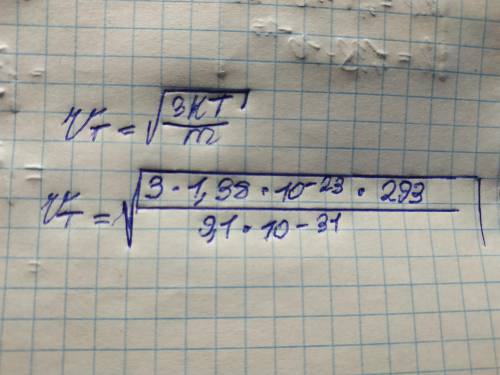 υ_T = √(3kT / m)
υ_T = √(3 · 1,38 · 10⁻²³ · 293 / 9,1 · 10⁻³¹)